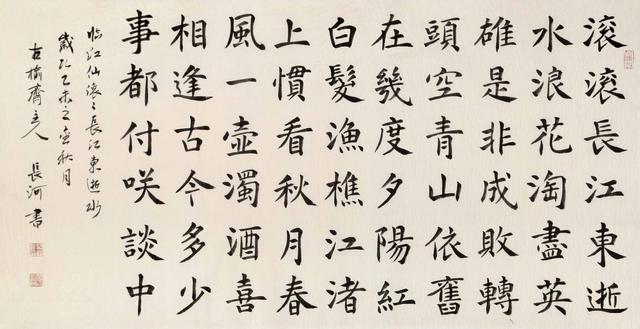 滾滾長江東逝
水浪花淘盡英
雄是非成敗轉
頭空青山依舊
在幾度夕陽紅
白髮漁樵江渚
上慣看秋月春
風一壺濁酒喜
相逢古今多少
事都付咲談中
臨江仙滾〻長江東逝水
歲乙未之秋月
古橋齋主人 長河書